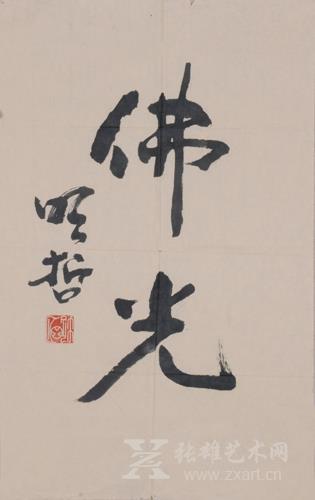 佛光
明哲
张雄艺术网
www.zxart.cn